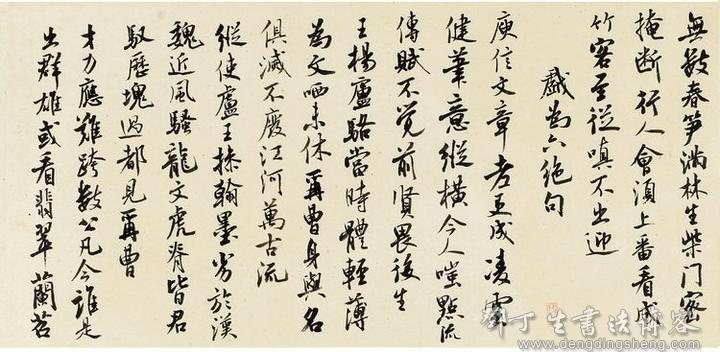 無數春笋滿林生柴门密
掩断行人會須上番看成
竹客至從嗔不出迎
戲為六絶句
庾信文章老更成凌雲
健筆意縱橫今人嗤點流
傳賦不觉前賢畏後生
王楊盧駱當時體輕薄
為文哂未休爾曹身與名
俱滅不廢江河萬古流
縱使盧王操翰墨劣於漢
魏近風騷龍文虎脊皆君
馭歷塊過都見爾曹
才力應難跨數公凡今誰是
出群雄或看翡翠蘭苕
鄧丁生書法博客
www.dengdingsheng.com